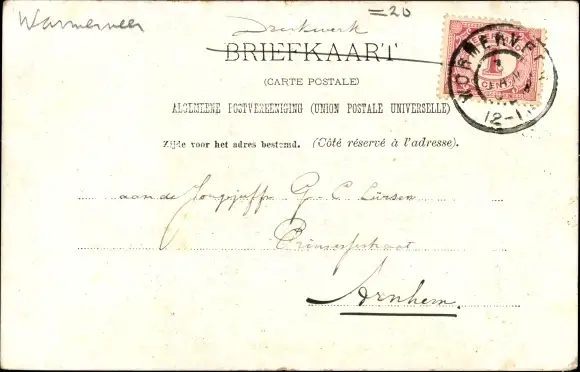 Warmerveer
Drukwerk
=20
BRIEFKAART
(CARTE POSTALE)
ALGEMEENE POSTVEREENIGING (UNION POSTALE UNIVERSELLE)
Zijde voor het adres bestemd. (Côté réservé à l'adresse).
WORMERVEER
12-1
1
CENT
aan de G. C. Lürsen
Prinsessestraat
Arnhem.